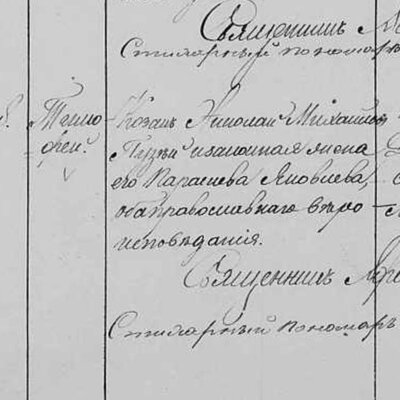 Священникъ
Стихарный пономаръ
Тимо
фей.
Козакъ Николай Михайловъ
и законная жена
его Параскева Яковлева,
оба православнаго вѣро
исповѣданія.
Священникъ
Стихарный пономаръ